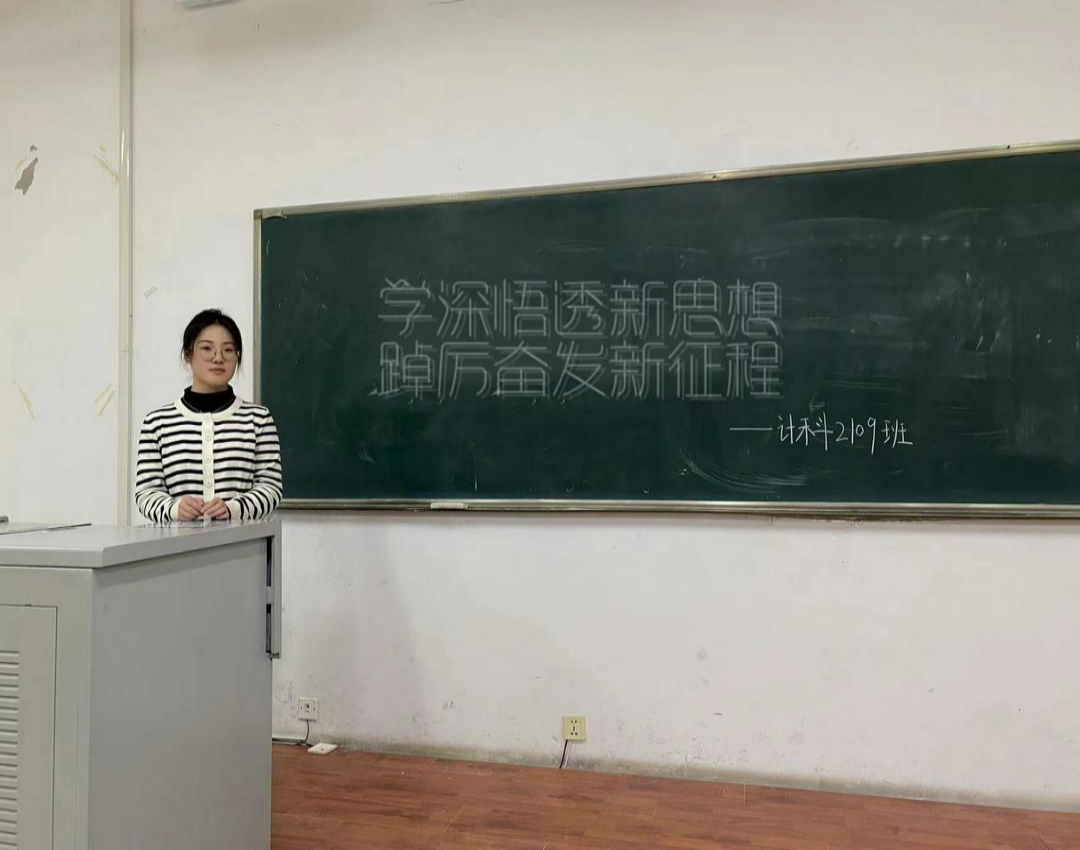 学深悟透新思想
踔厉奋发新征程
——计科2109班